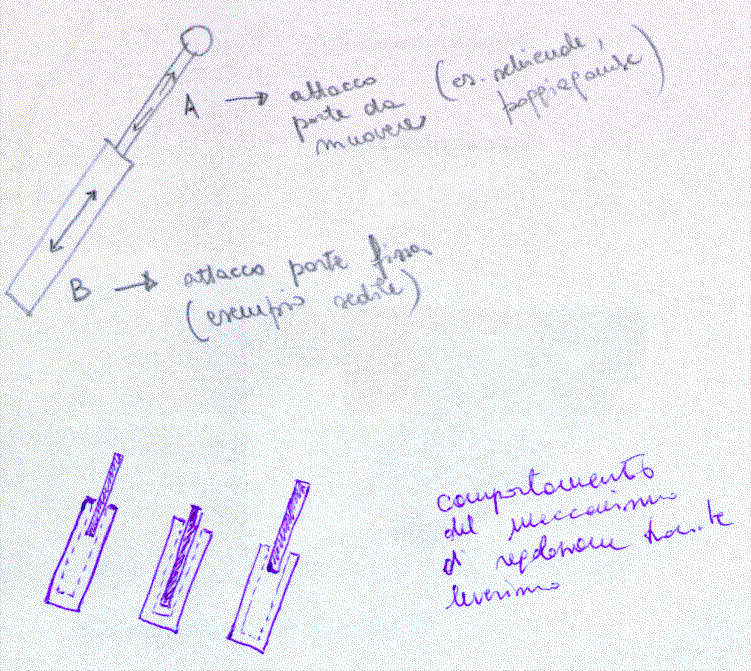 A → attacco
parte da
muovere
(es. schienale,
poggiagambe)
B → attacco parte fissa
(esempio sedile)
comportamento
del meccanismo
di regolazione tramite
leverismo